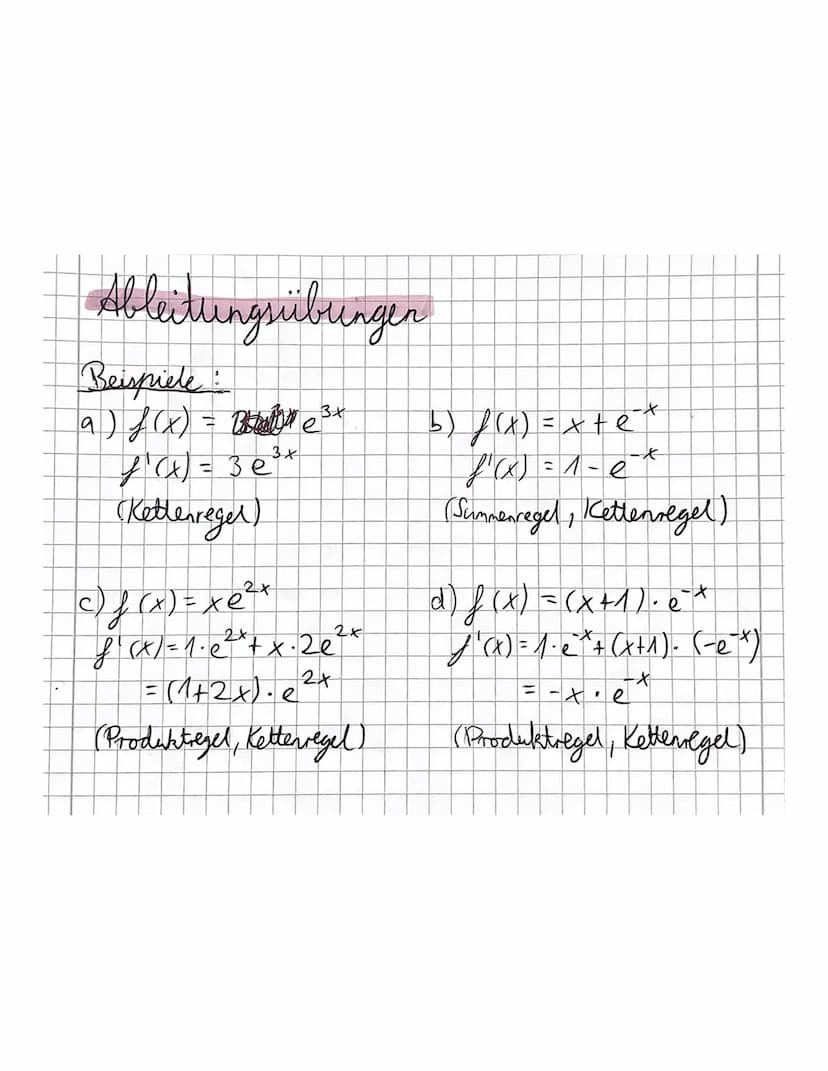 Ableitungsübungen
Beispiele:
a) f(x) = e^3x
f'(x) = 3e^3x
(Kettenregel)
b) f(x) = x + e^-x
f'(x) = 1 - e^-x
(Summenregel, Kettenregel)
c) f(x) = xe^2x
f'(x) = 1·e^2x + x·2e^2x
= (1+2x)·e^2x
(Produktregel, Kettenregel)
d) f(x) = (x+1)·e^-x
f'(x) = 1·e^-x + (x+1)·(-e^-x)
= -x·e^-x
(Produktregel, Kettenregel)